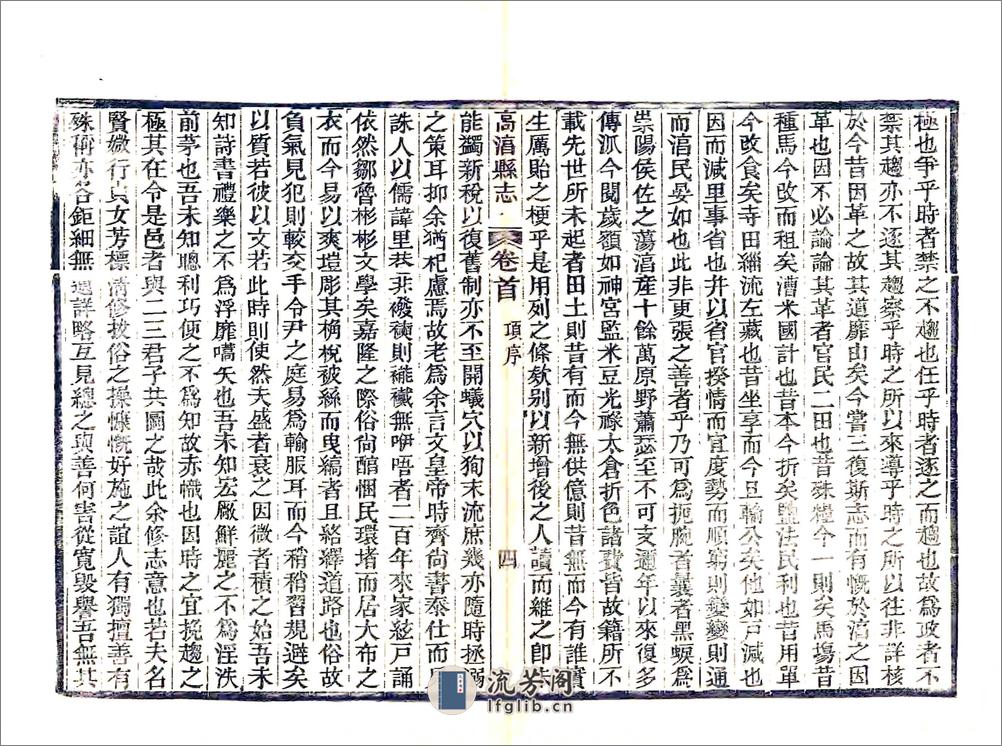 極也爭乎時者禁之不趨也任乎時者逐之而趨也故爲政者不
禁其趨亦不逐其趨察乎時之所以來導乎時之所以往非詳核
於今昔因革之故其道靡由矣今嘗三復斯志而有慨於淯之因
革也因不必論論其革者官民二田也昔殊糧今一則矣馬場昔
種馬今改而租矣漕米國計也昔本今折矣鹽法民利也昔用單
今改食矣寺田緇流左藏也昔坐享而今且輸公矣他如戸減也
因而減里事省也并以省官揆情而宜度勢而順窮則變變則通
而淯民晏如也此非更張之善者乎乃可爲扼腕者曩者黑蜧爲
祟陽侯佐之蕩淯産十餘萬原野蕭瑟至不可支邇年以來復多
傳派今閱歲額如神宮監米豆光祿太倉折色諸費皆故籍所不
載先世所未起者田土則昔有而今無供億則昔無而今有誰實
生厲貽之梗乎是用列之條欸别以新增後之人讀而維之即未
高淯縣志 卷首 項序 四
能獨新稅以復舊制亦不至開蟻穴以狥末流庶幾亦隨時拯溺
之策耳抑余猶杞慮焉故老爲余言文皇帝時齊尚書泰仕而
誅人以儒諱里巷非襏襫則襶無咿唔者二百年來家絃戸誦
依然鄒魯彬彬文學矣嘉隆之際俗尚悃民環堵而居大布之
衣而今易以爽塏彫其桷梲被絲而曳縞者且絡繹道路也俗故
負氣見犯則較交手令尹之庭易爲輸服耳而今稍稍習規避矣
以質若彼以文若此時則使然夫盛者衰之因微者積之始吾未
知詩書禮樂之不爲浮靡嚆矢也吾未知宏厰鮮麗之不爲淫泆
前茅也吾未知聰利巧便之不爲知故赤幟也因時之宜挽趨之
極其在令是邑者與二三君子共圖之哉此余修志意也若夫名
賢媺行貞女芳標淸修拔俗之操慷慨好施之誼人有獨擅善有
殊稱亦各鉅細無遺詳略互見總之與善何害從寬毁譽吾無其
流芳阁
lfglib.cn